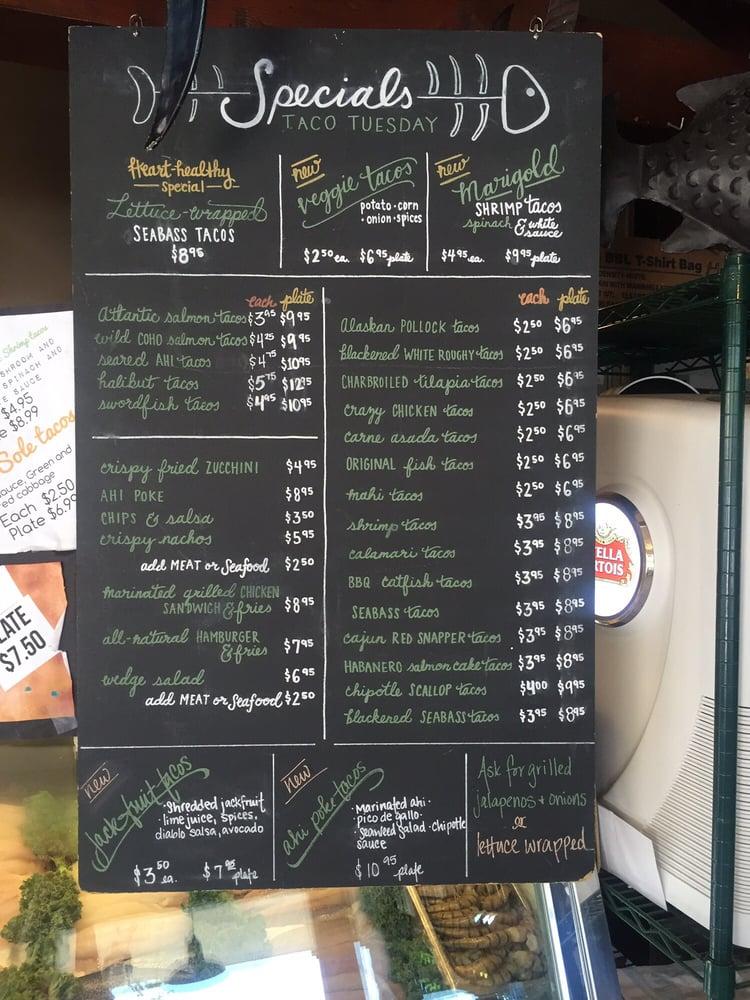 Specials
TACO TUESDAY
Heart-healthy
special
Lettuce-wrapped
SEABASS TACOS
$8.95
new
veggie tacos
potato·corn
·onion·spices
$2.50 ea. $6.95 plate
new
Marigold
SHRIMP tacos
spinach & white
sauce
$4.95 ea. $9.95 plate
each plate
Atlantic salmon tacos $3.95 $9.95
wild COHO salmon tacos $4.25 $9.95
seared AHI tacos $4.75 $10.95
halibut tacos $5.75 $12.95
swordfish tacos $4.95 $10.95
crispy fried ZUCCHINI $4.95
AHI POKE $8.95
CHIPS & salsa $3.50
crispy nachos $5.95
add MEAT or Seafood $2.50
marinated grilled CHICKEN
SANDWICH & fries $8.95
all-natural HAMBURGER
& fries $7.95
wedge salad $6.95
add MEAT or Seafood $2.50
each plate
Alaskan POLLOCK tacos $2.50 $6.95
blackened WHITE ROUGHY tacos $2.50 $6.95
CHARBROILED tilapia tacos $2.50 $6.95
crazy CHICKEN tacos $2.50 $6.95
carne asada tacos $2.50 $6.95
ORIGINAL fish tacos $2.50 $6.95
mahi tacos $2.50 $6.95
shrimp tacos $3.95 $8.95
calamari tacos $3.95 $8.95
BBQ catfish tacos $3.95 $8.95
SEABASS tacos $3.95 $8.95
cajun RED SNAPPER tacos $3.95 $8.95
HABANERO salmon cake tacos $3.95 $8.95
chipotle SCALLOP tacos $4.00 $9.95
blackened SEABASS tacos $3.95 $8.95
new
jack-fruit tacos
·Shredded jackfruit
·lime juice, spices,
diablo salsa, avocado
$3.50 ea. $7.95 plate
new
ahi poke tacos
·Marinated ahi·
pico de gallo·
·Seaweed salad·chipotle
sauce
$10.95 plate
Ask for grilled
jalapenos + onions
or
lettuce wrapped
Shrimp tacos
SHROOM AND
SPINACH AND
E SAUCE
$4.95
e $8.99
Sole tacos
auce, Green and
ed cabbage
Each $2.50
Plate $6.99
LATE
$7.50
BBL T-Shirt Bag
ELLA
RTOIS